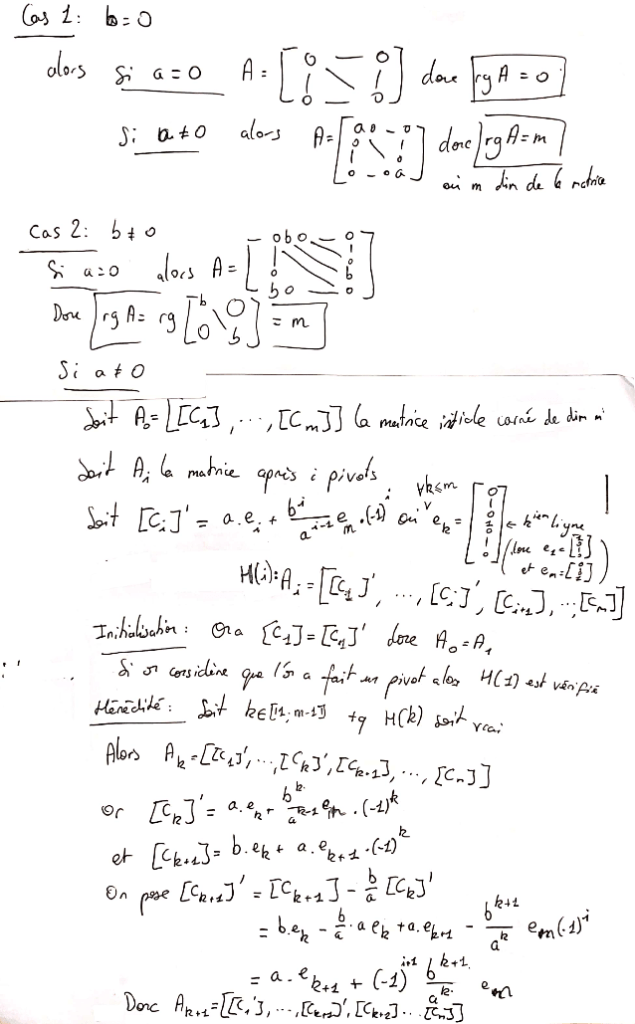 Cas 1: b=0
alors si a=0 A=[0 — 0 | \ | 0 — 0] donc rg A = 0
Si a≠0 alors A=[a 0 - 0 | \ | 0 - 0 a] donc rg A=m
où m dim de la matrice
Cas 2: b≠0
Si a=0 alors A=[0 b 0 — 0 | \ b | 0 b 0 — 0]
Donc rg A= rg [b 0 \ 0 b] = m
Si a≠0
Soit A₀=[[C₁],...,[Cm]] la matrice initiale carré de dim m
Soit Aᵢ la matrice après i pivots
Soit [Cᵢ]' = a.eᵢ + bⁱ/aⁱ⁻¹ em.(-1)ⁱ où ∀k≤m eₖ = [0 | 0 1 0 | 0] ← kième ligne
(donc e₁=[1 0 0] et em=[0 0 1])
H(i): Aᵢ=[[C₁]', ..., [Cᵢ]', [Cᵢ₊₁], ..., [Cm]]
Initialisation: Or [C₁]=[C₁]' donc A₀=A₁
Si on considère que l'on a fait un pivot alors H(1) est vérifié
Hérédité: Soit k∈[|1; m-1|] tq H(k) soit vrai
Alors Aₖ=[[C₁]',...,[Cₖ]',[Cₖ₊₁], ..., [Cm]]
or [Cₖ]' = a.eₖ + bᵏ/aᵏ⁻¹ em.(-1)ᵏ
et [Cₖ₊₁]= b.eₖ + a.eₖ₊₁.(-1)ᵏ
On pose [Cₖ₊₁]' = [Cₖ₊₁] - b/a [Cₖ]'
= b.eₖ - b/a.a eₖ + a.eₖ₊₁ - bᵏ⁺¹/aᵏ em(-1)ⁱ
= a.eₖ₊₁ + (-1)ⁱ⁺¹ bᵏ⁺¹/aᵏ em
Donc Aₖ₊₁=[[C₁'],...,[Cₖ₊₁]',[Cₖ₊₂]...[Cm]]